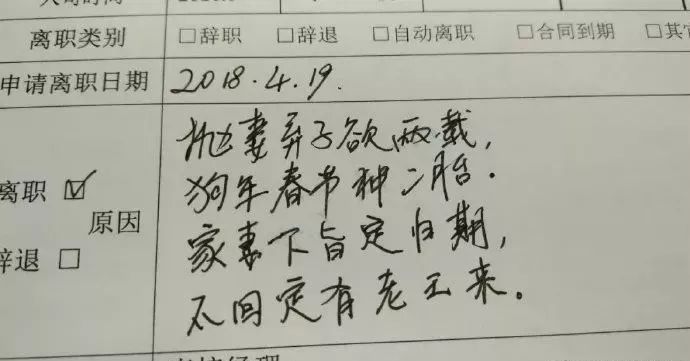 离职类别 □辞职 □辞退 □自动离职 □合同到期 □其
申请离职日期 2018.4.19.
抛妻弃子欲两载,
狗年春节种二胎.
离职 ☑
原因
家妻下旨定归期,
辞退 □
不回定有老王来。